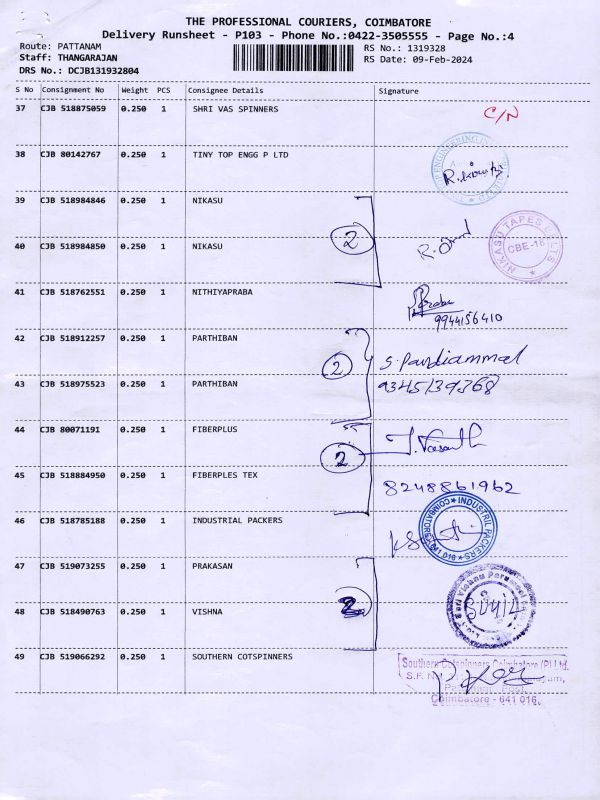 THE PROFESSIONAL COURIERS, COIMBATORE
Delivery Runsheet - P103 - Phone No.:0422-3505555 - Page No.:4
Route: PATTANAM
RS No.: 1319328
Staff: THANGARAJAN
RS Date: 09-Feb-2024
DRS No.: DCJB131932804
S No Consignment No Weight PCS Consignee Details Signature
37 CJB 518875059 0.250 1 SHRI VAS SPINNERS C/N
38 CJB 80142767 0.250 1 TINY TOP ENGG P LTD
39 CJB 518984846 0.250 1 NIKASU
2
NIKASU TAPES BELTS
CBE-16
40 CJB 518984850 0.250 1 NIKASU
41 CJB 518762551 0.250 1 NITHIYAPRABA
9944156410
42 CJB 518912257 0.250 1 PARTHIBAN
2 S. Pandiammal
43 CJB 518975523 0.250 1 PARTHIBAN 9345139368
44 CJB 80071191 0.250 1 FIBERPLUS
2
45 CJB 518884950 0.250 1 FIBERPLES TEX 8248861962
46 CJB 518785188 0.250 1 INDUSTRIAL PACKERS
INDUSTRIL PACKERS
COIMBATORE 641 016
47 CJB 519073255 0.250 1 PRAKASAN
2
48 CJB 518490763 0.250 1 VISHNA
49 CJB 519066292 0.250 1 SOUTHERN COTSPINNERS
Southern Cotspinners Coimbatore (P) Ltd.
S.F. N
Post,
Coimbatore - 641 016.